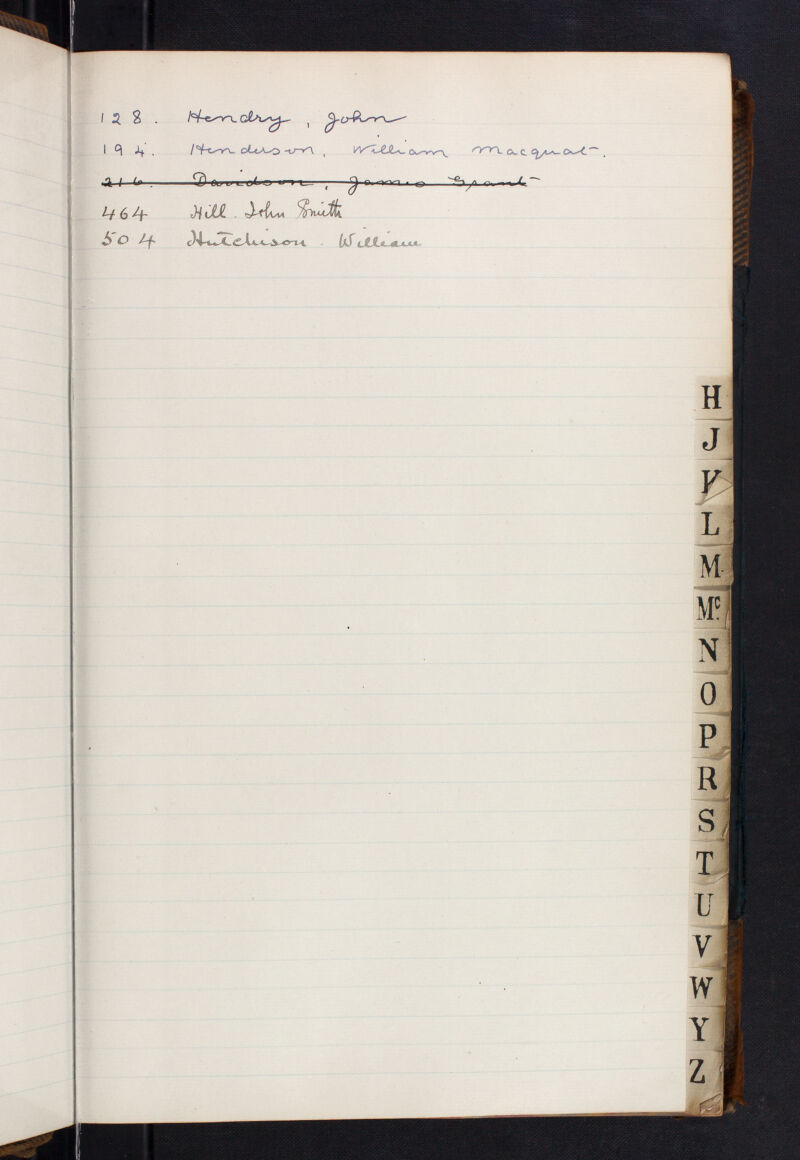 128. Hendry, John
194. Henderson, William Macquat.
216. Davidson, James Grant
464 Hill. John Smith
504 Hutchison. William
H
J
K
L
M
Mc.
N
O
P
R
S
T
U
V
W
Y
Z